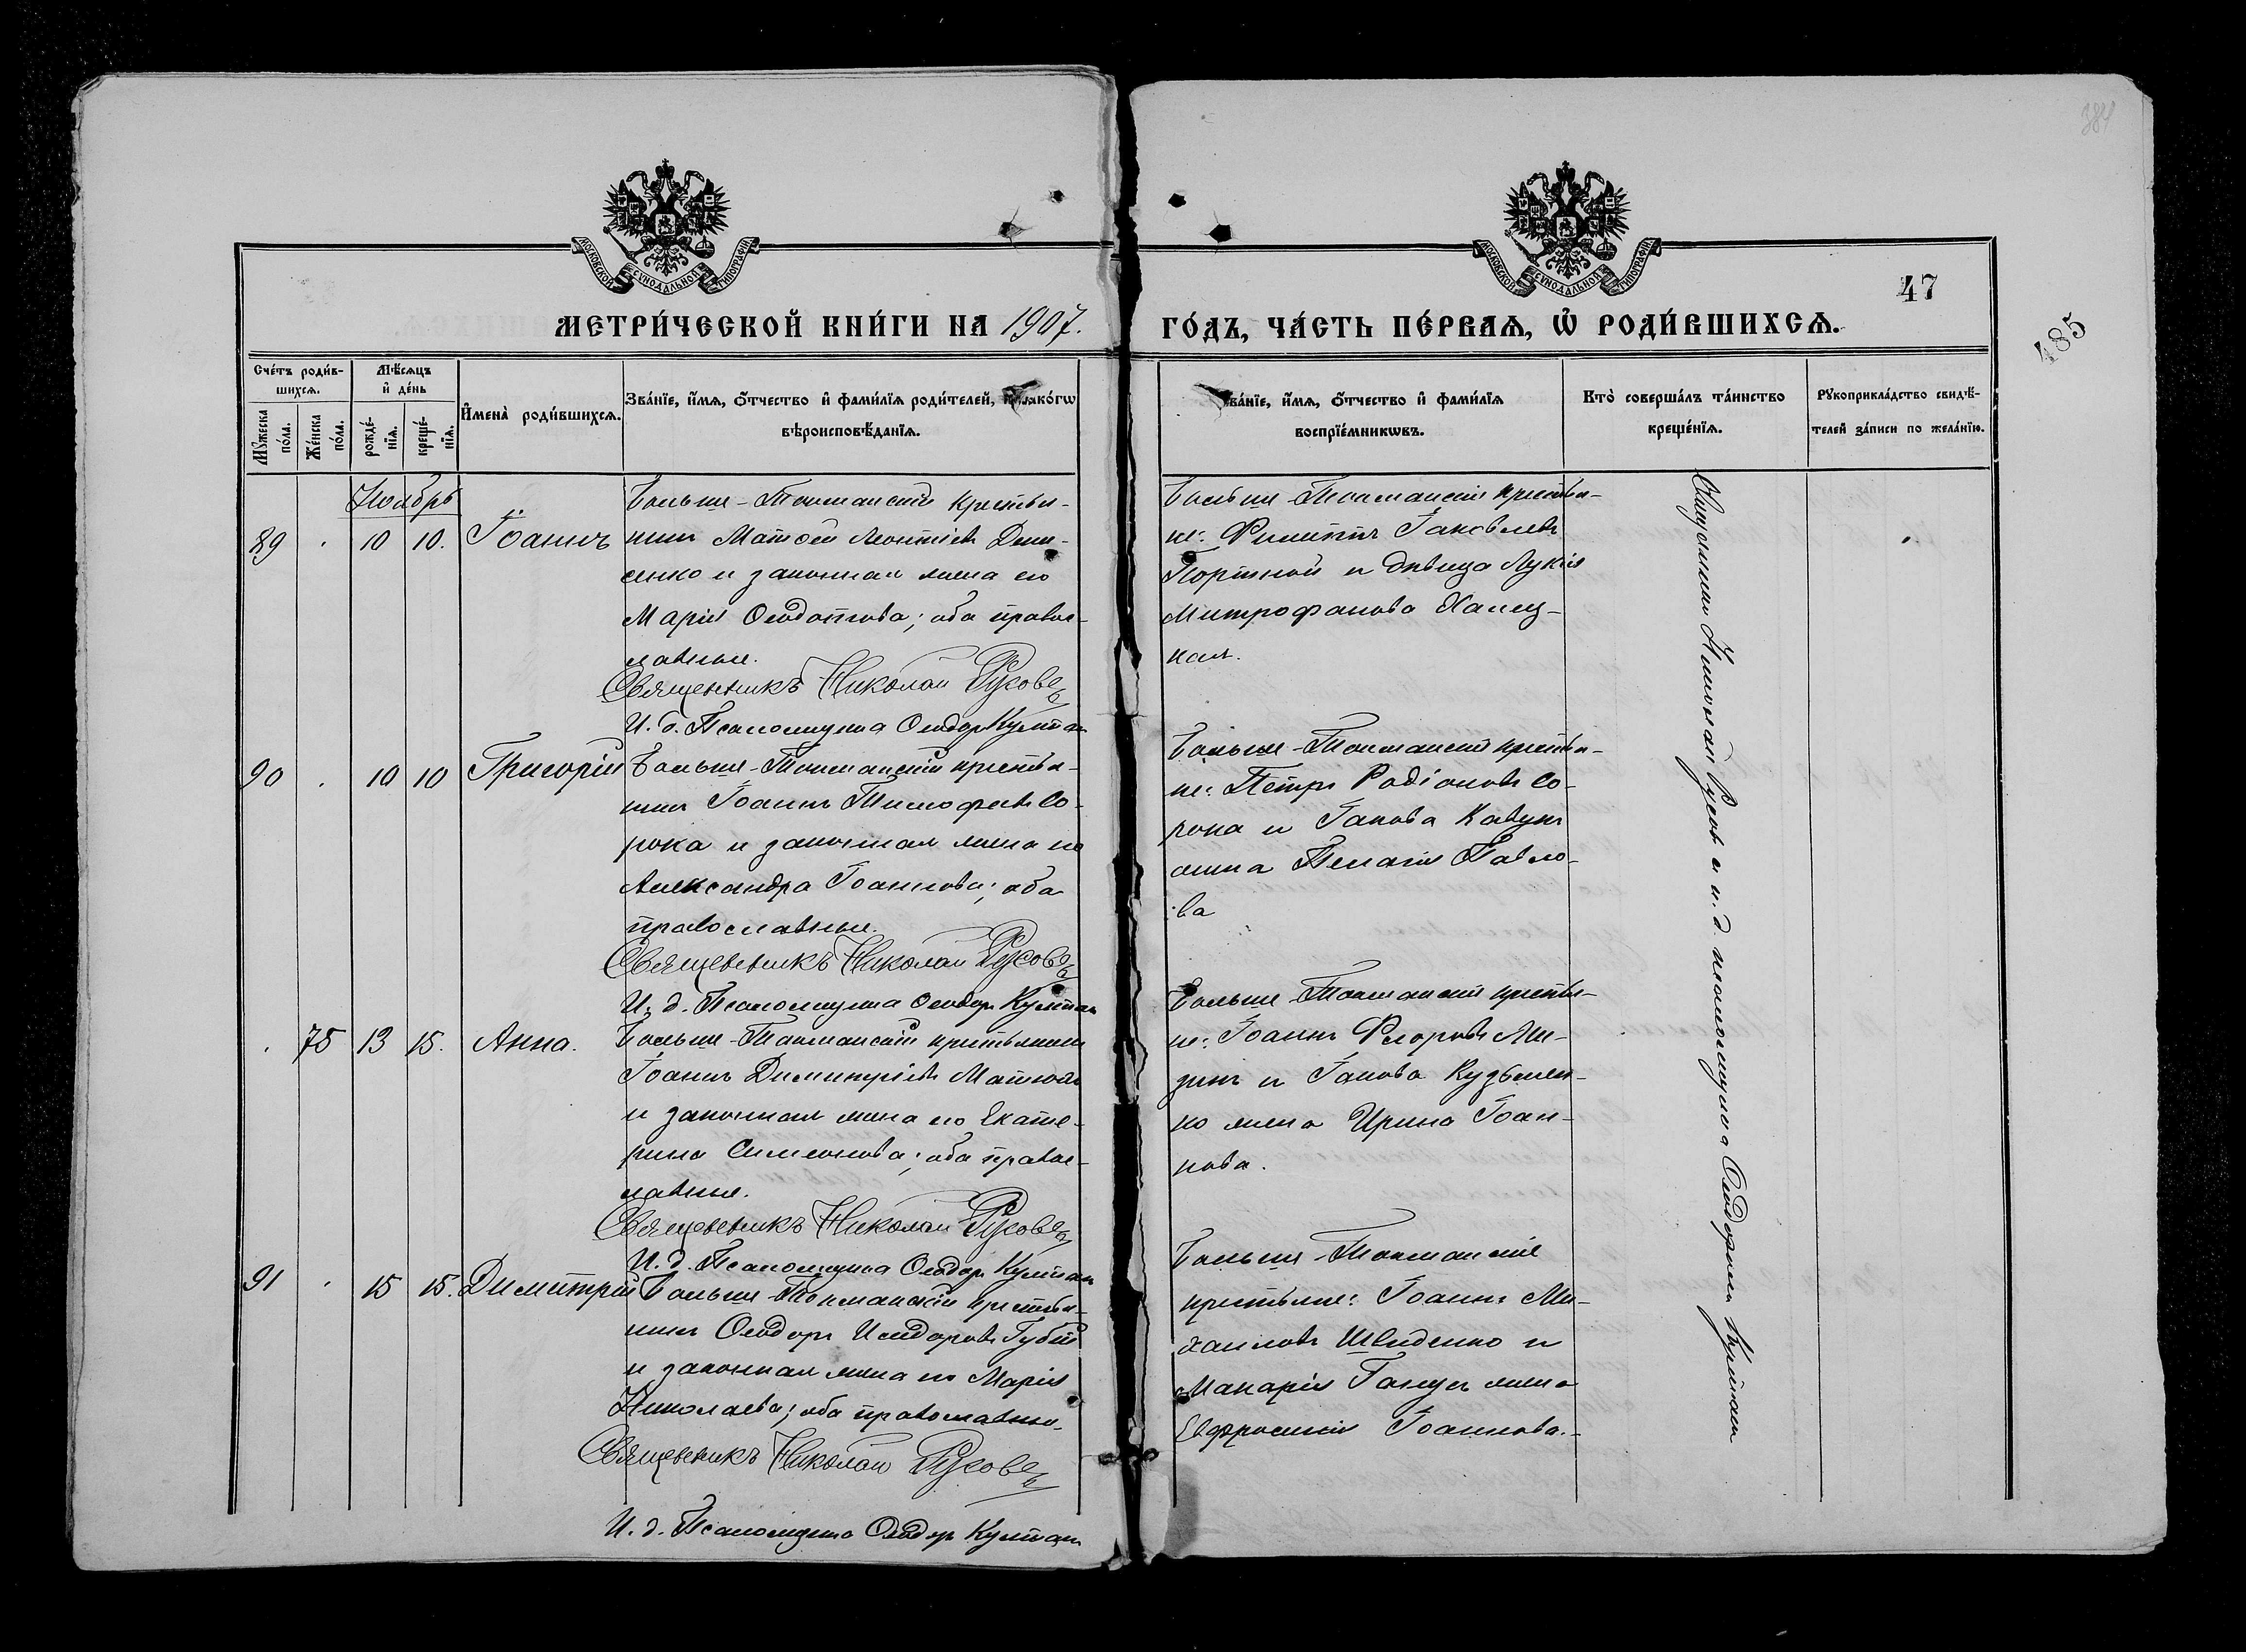 384
МОСКОВСКОЙ СѴНОДАЛЬНОЙ ТИПОГРАФІИ
МОСКОВСКОЙ СѴНОДАЛЬНОЙ ТИПОГРАФІИ
47
485
МЕТРИ́ЧЕСКОЙ КНИ́ГИ НА 1907. ГО́ДЪ, ЧА́СТЬ ПЕ́РВАѦ, Ѡ҆ РОДИ́ВШИХСѦ.
Сче́тъ роди́в-
шихсѧ.
Мꙋ́жеска по́ла.
Же́нска по́ла.
Мѣ́сѧцъ
и҆ де́нь
рожде́-
нїѧ.
креще́-
нїѧ.
И҆мена̀ роди́вшихсѧ.
Зва́нїе, и҆́мѧ, ѻ҆́тчество и҆ фами́лїѧ роди́телей, и҆ како́гѡ
вѣроисповѣ́данїѧ.
Зва́нїе, и҆́мѧ, ѻ҆́тчество и҆ фами́лїѧ
воспрїе́мникѡвъ.
Кто̀ соверша́лъ та́инство
креще́нїѧ.
Рꙋкоприкла́дство свидѣ́-
телей за́писи по жела́нїю.
Ноябрь
89
10
10.
Іоаннъ
Больше-Токмакскій крестья-
нинъ Матѳей Леонтіевъ Дени-
сенко и законная жена его
Марія Ѳеодотова; оба правос-
лавные.
Священникъ Николай Русовъ
И. д. Псаломщика Ѳеодоръ
Больше-Токмакскіе крестья-
не: Филиппъ Іаковлевъ
Портной и дѣвица Лукія
Митрофанова Халец-
кая.
90
10
10
Григорій
Больше-Токмакскій крестья-
нинъ Іоаннъ Тимофеевъ Со-
рока и законная жена его
Александра Іоаннова; оба
православные.
Священникъ Николай Русовъ
И. д. Псаломщика Ѳеодоръ
Больше-Токмакскіе крестья-
не: Петръ Родіоновъ Со-
рока и Іакова Кавунъ
жена Пелагія Павло-
ва
75
13
15.
Анна.
Больше-Токмакскій крестьянинъ
Іоаннъ Димитріевъ
и законная жена его Екате-
рина Симеонова; оба правос-
лавные.
Священникъ Николай Русовъ
И. д. Псаломщика Ѳеодоръ
Больше-Токмакскіе крестья-
не: Іоаннъ Флоровъ Ми-
зинъ и Іакова Кузьмен-
ко жена Ирина Іоан-
нова.
91
15
15.
Димитрій
Больше-Токмакскій крестья-
нинъ Ѳеодоръ Исидоровъ Губий
и законная жена его Марія
Николаева; оба православные.
Священникъ Николай Русовъ
И. д. Псаломщика Ѳеодоръ
Больше-Токмакскіе
крестьяне: Іоаннъ Ми-
хаиловъ Швиденко и
Макарія жена
Евфросинія Іоаннова.
Священникъ Николай Русовъ и и. д. псаломщика Ѳеодоръ